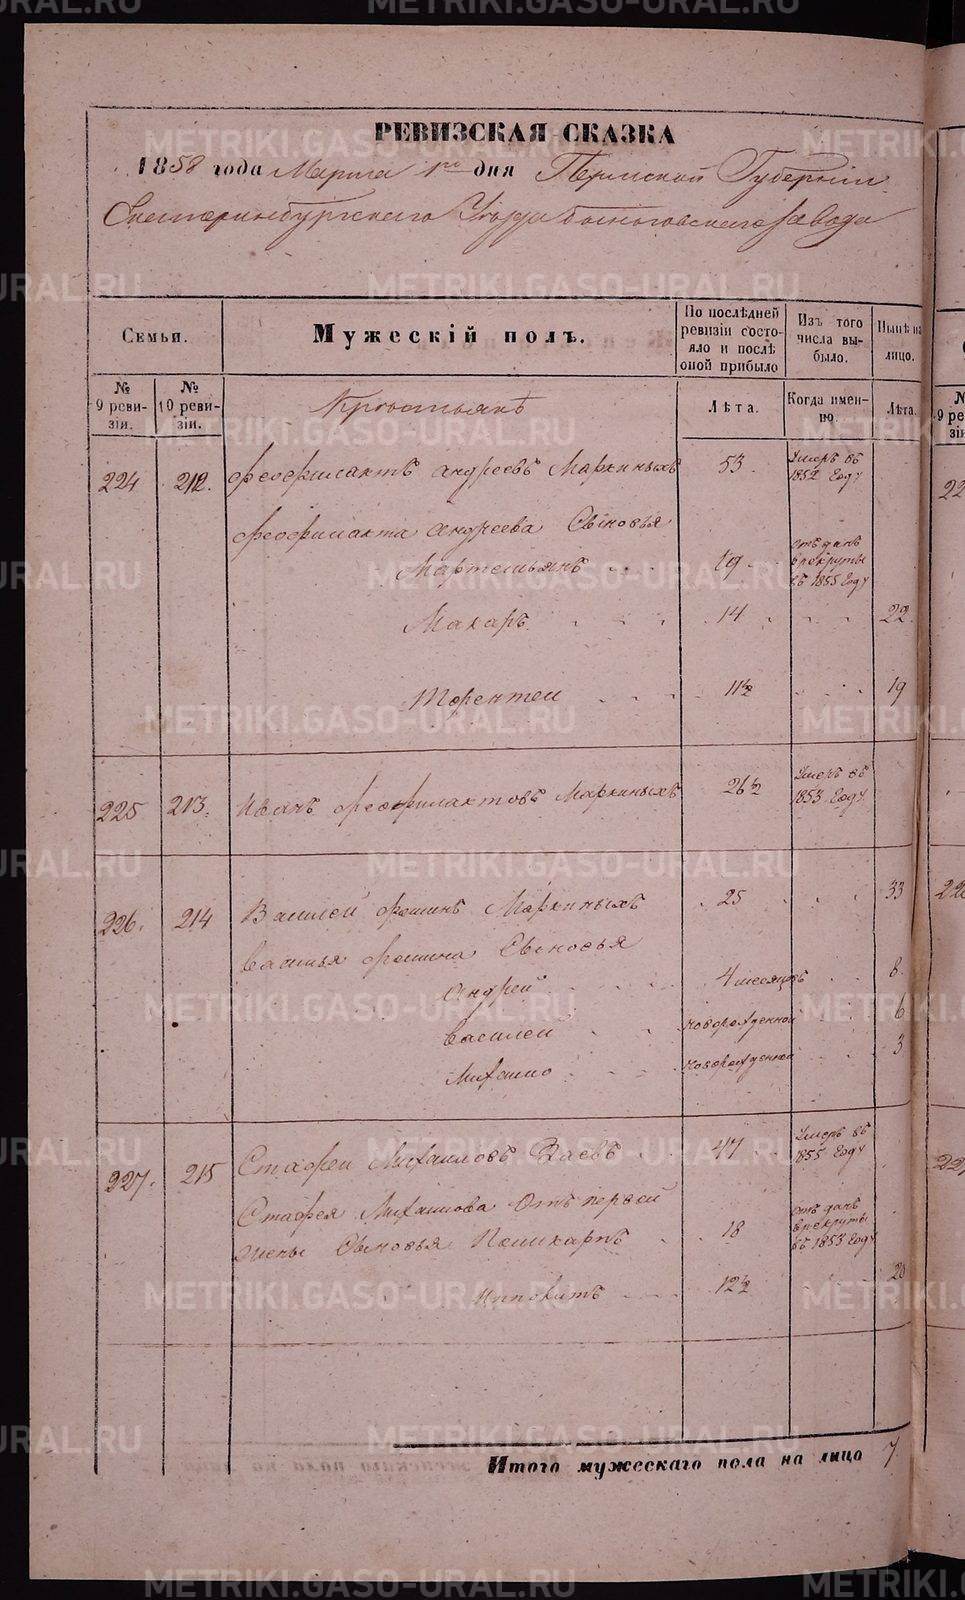 РЕВИЗСКАЯ СКАЗКА
1858 года Марта 1го дня Пермской Губернии
Екатеринбургского Уезда завода
Семьи. Мужескій полъ. По послѣдней ревизіи состояло и послѣ оной прибыло Изъ того числа выбыло. Нынѣ на лицо.
№ 9 ревизіи. № 10 ревизіи. Лѣта. Когда именно. Лѣта.
Крестьянъ
224 212. Феофилактъ Андреевъ Маркиныхъ 53. Умеръ въ 1852 Году
Феофилакта Андреева Сыновья
Мартемьянъ 19 отъданъ в рекруты въ 1855 Году
Макаръ 14 22.
Терентеи 11½ 19
225 213. Иванъ Феофилактовъ Маркиныхъ 26½ Умеръ въ 1853 Году
226. 214 Василеи Фоминъ Маркиныхъ 25 33
Василья Фомина Сыновья
Андрей 4 месяцовъ 8.
Василеи новорожденной 6
Михаило новорожденной 3
227. 215 Стафеи Михаиловъ Заевъ 47 Умеръ въ 1855 Году
Стафея Михаилова Отъ первой
жены Сыновья Поликарпъ 18 отъданъ в рекруты въ 1853 Году
Ипполитъ 12½ 20
Итого мужескаго пола на лицо 7
METRIKI.GASO-URAL.RU